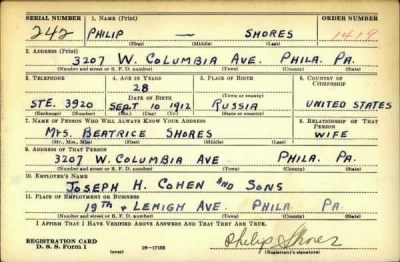 SERIAL NUMBER 1. NAME (Print) ORDER NUMBER
242 PHILIP — SHORES 1419
(First) (Middle) (Last)
2. ADDRESS (Print)
3207 W. COLUMBIA AVE. PHILA. PA.
(Number and street or R. F. D. number) (Town) (County) (State)
3. TELEPHONE 4. AGE IN YEARS 5. PLACE OF BIRTH 6. COUNTRY OF CITIZENSHIP
28
DATE OF BIRTH (Town or county)
STE. 3920 SEPT. 10 1912 RUSSIA UNITED STATES
(Exchange) (Number) (Mo.) (Day) (Yr.) (State or country)
7. NAME OF PERSON WHO WILL ALWAYS KNOW YOUR ADDRESS 8. RELATIONSHIP OF THAT PERSON
MRS. BEATRICE SHORES WIFE
(Mr., Mrs., Miss) (First) (Middle) (Last)
9. ADDRESS OF THAT PERSON
3207 W. COLUMBIA AVE PHILA. PA.
(Number and street or R. F. D. number) (Town) (County) (State)
10. EMPLOYER'S NAME
JOSEPH H. COHEN AND SONS
11. PLACE OF EMPLOYMENT OR BUSINESS
19TH + LEHIGH AVE. PHILA PA.
(Number and street or R. F. D. number) (Town) (County) (State)
I AFFIRM THAT I HAVE VERIFIED ABOVE ANSWERS AND THAT THEY ARE TRUE.
REGISTRATION CARD
D. S. S. Form 1 (over) 16—17105 Philip Shores
(Registrant's signature)